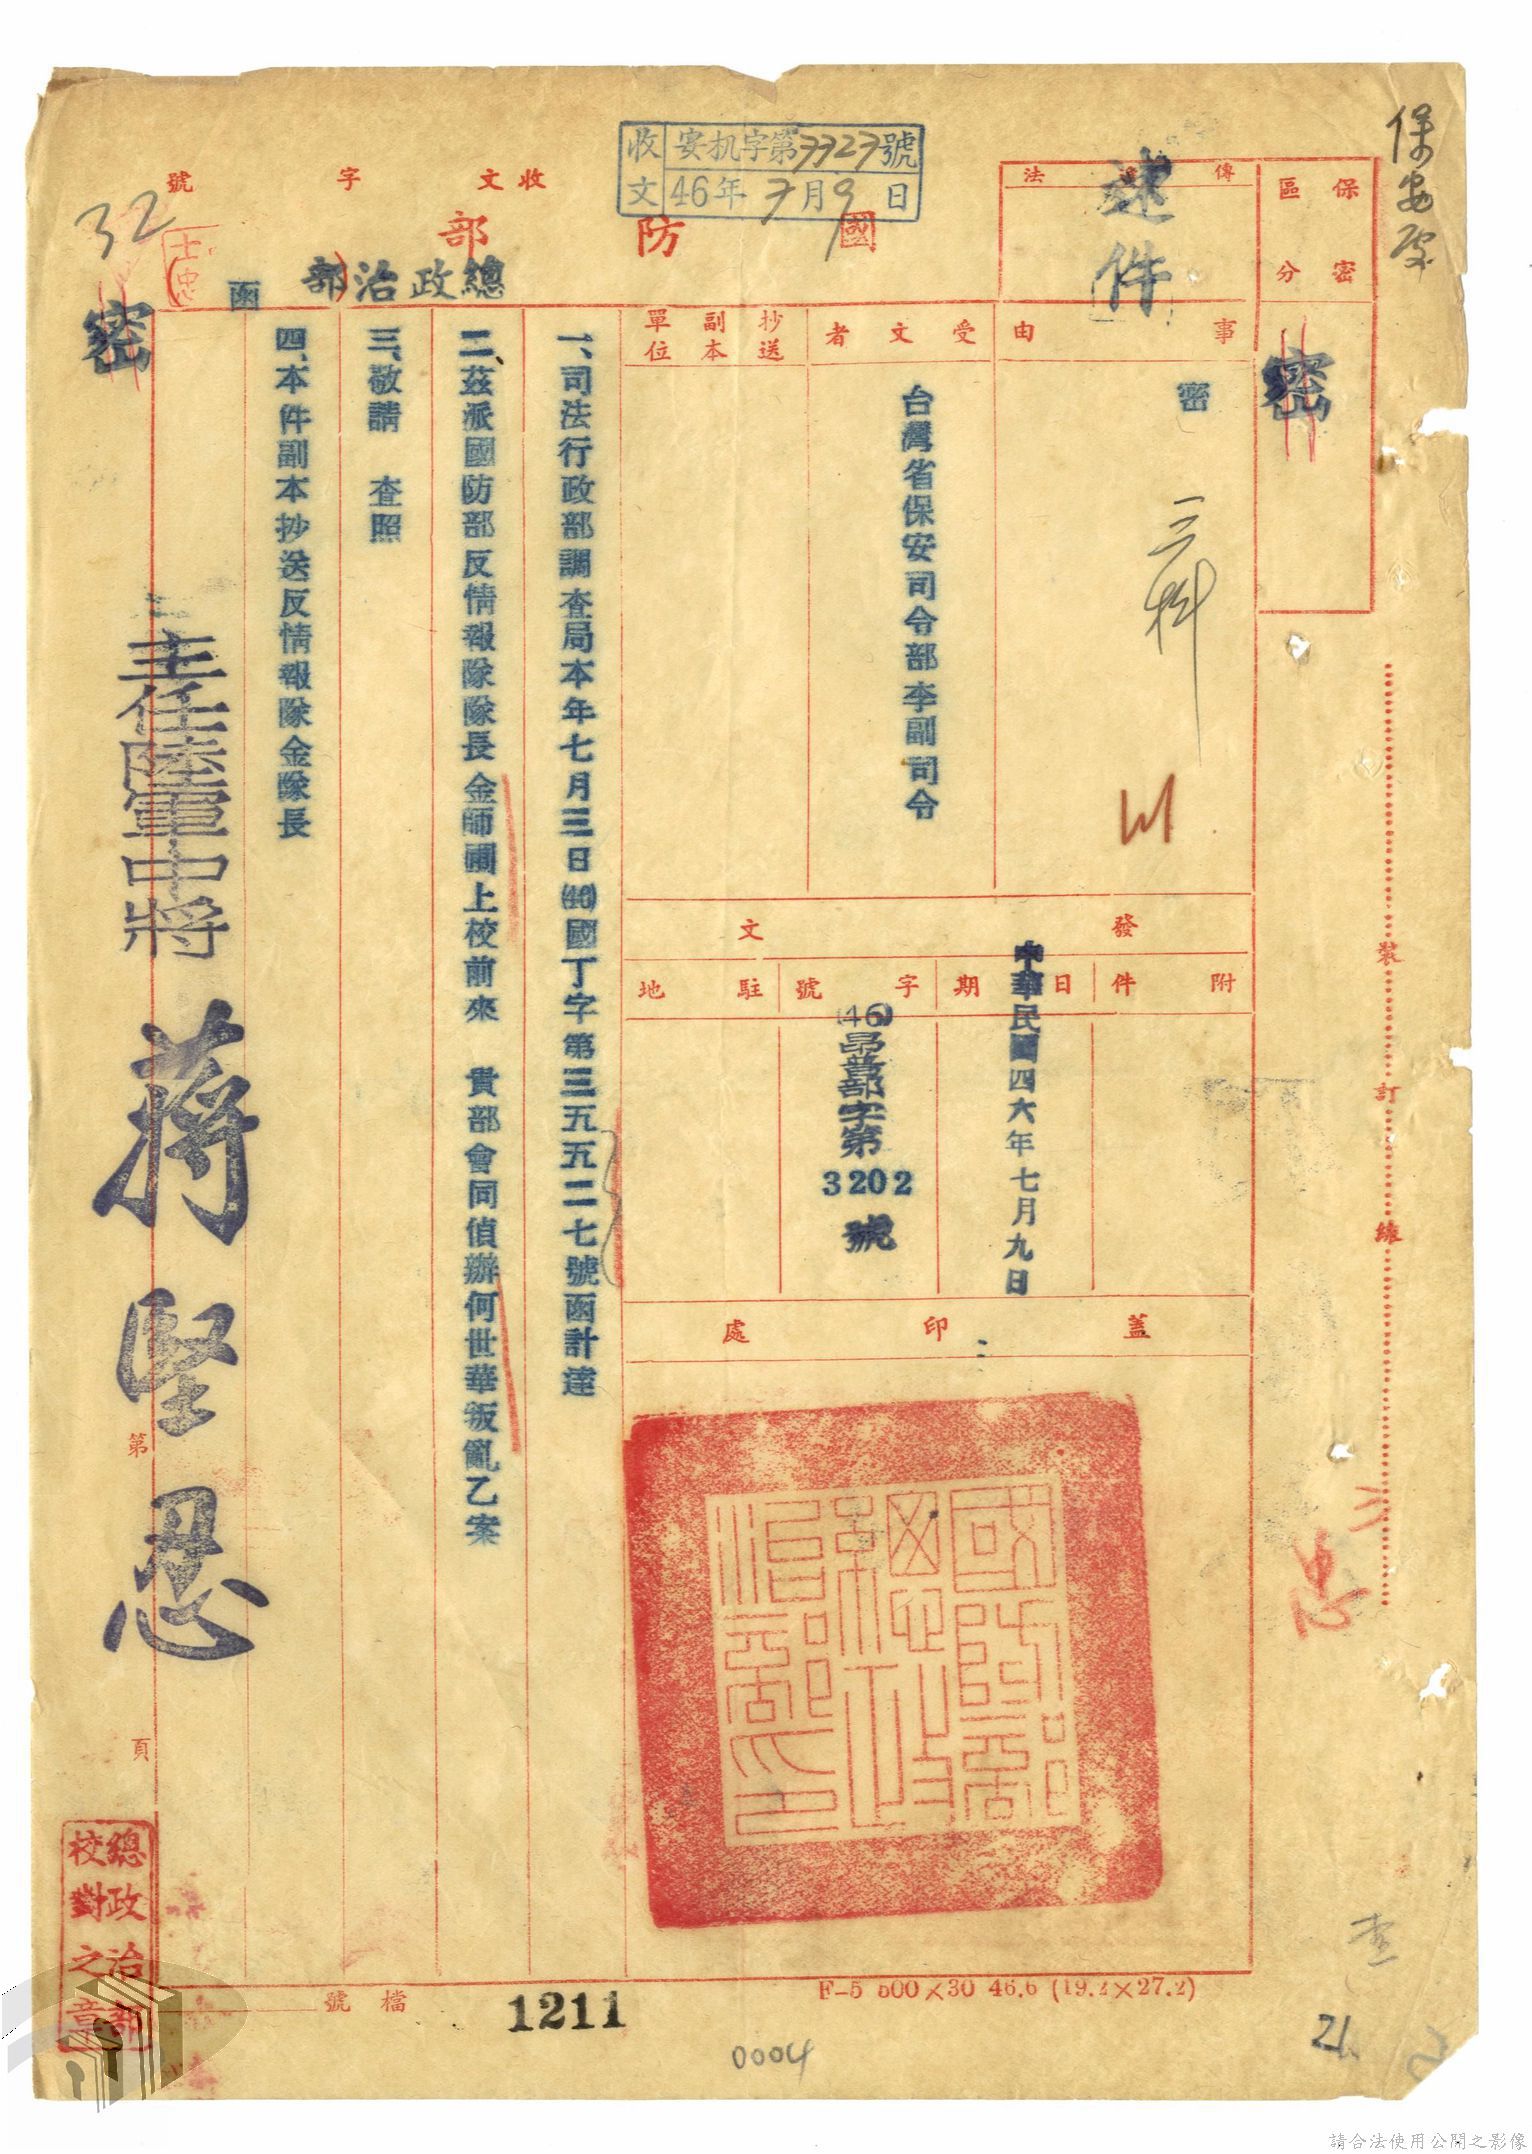 保安處
保密區分
密
傳達法
速件
收文 安机字第3323號
46年7月9日
國防部
總政治部
函
收文 字 號
32
密
事由
密
三科
受文者
台灣省保安司令部李副司令
抄送副本單位
發文
附件
日期
中華民國四六年七月九日
字號
(46)昂普部字第3202號
駐地
蓋印處
國防部總政治部印
一、司法行政部調查局本年七月三日(46)國丁字第三五五二七號函計達
二、茲派國防部反情報隊隊長金師圃上校前來 貴部會同偵辦何世華叛亂乙案
三、敬請 查照
四、本件副本抄送反情報隊金隊長
主任陸軍中將 蔣堅忍
第 頁
總政治部校對之章
裝訂線
忠
查
檔號
1211
F-5 500×30 46.6 (19.2×27.2)
0004
21
請合法使用公開之影像